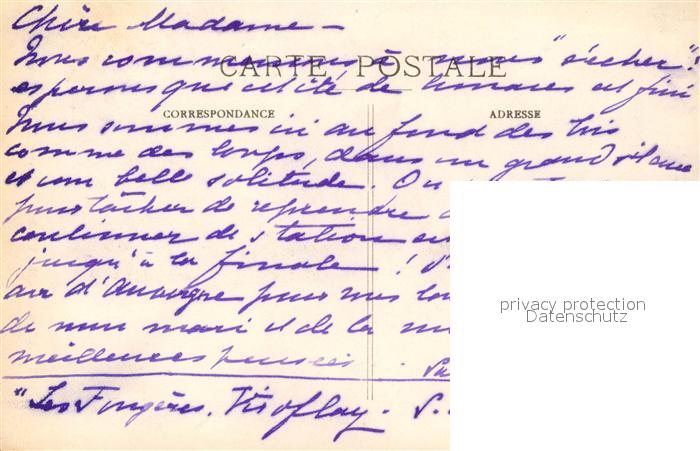 Chère Madame –
Nous commençons à nous "sécher"!
CARTE POSTALE
espérons que cet été de limaces est fini
CORRESPONDANCE
ADRESSE
Nous sommes ici au fond des bois
comme des loups, dans un grand silence
et une belle solitude. On
pour tâcher de reprendre
continuer de station en
jusqu'à la finale !
air d'Auvergne pour vous
de mon mari et de la
meilleures pensées.
"Les Fougères. Viroflay. S.
privacy protection
Datenschutz